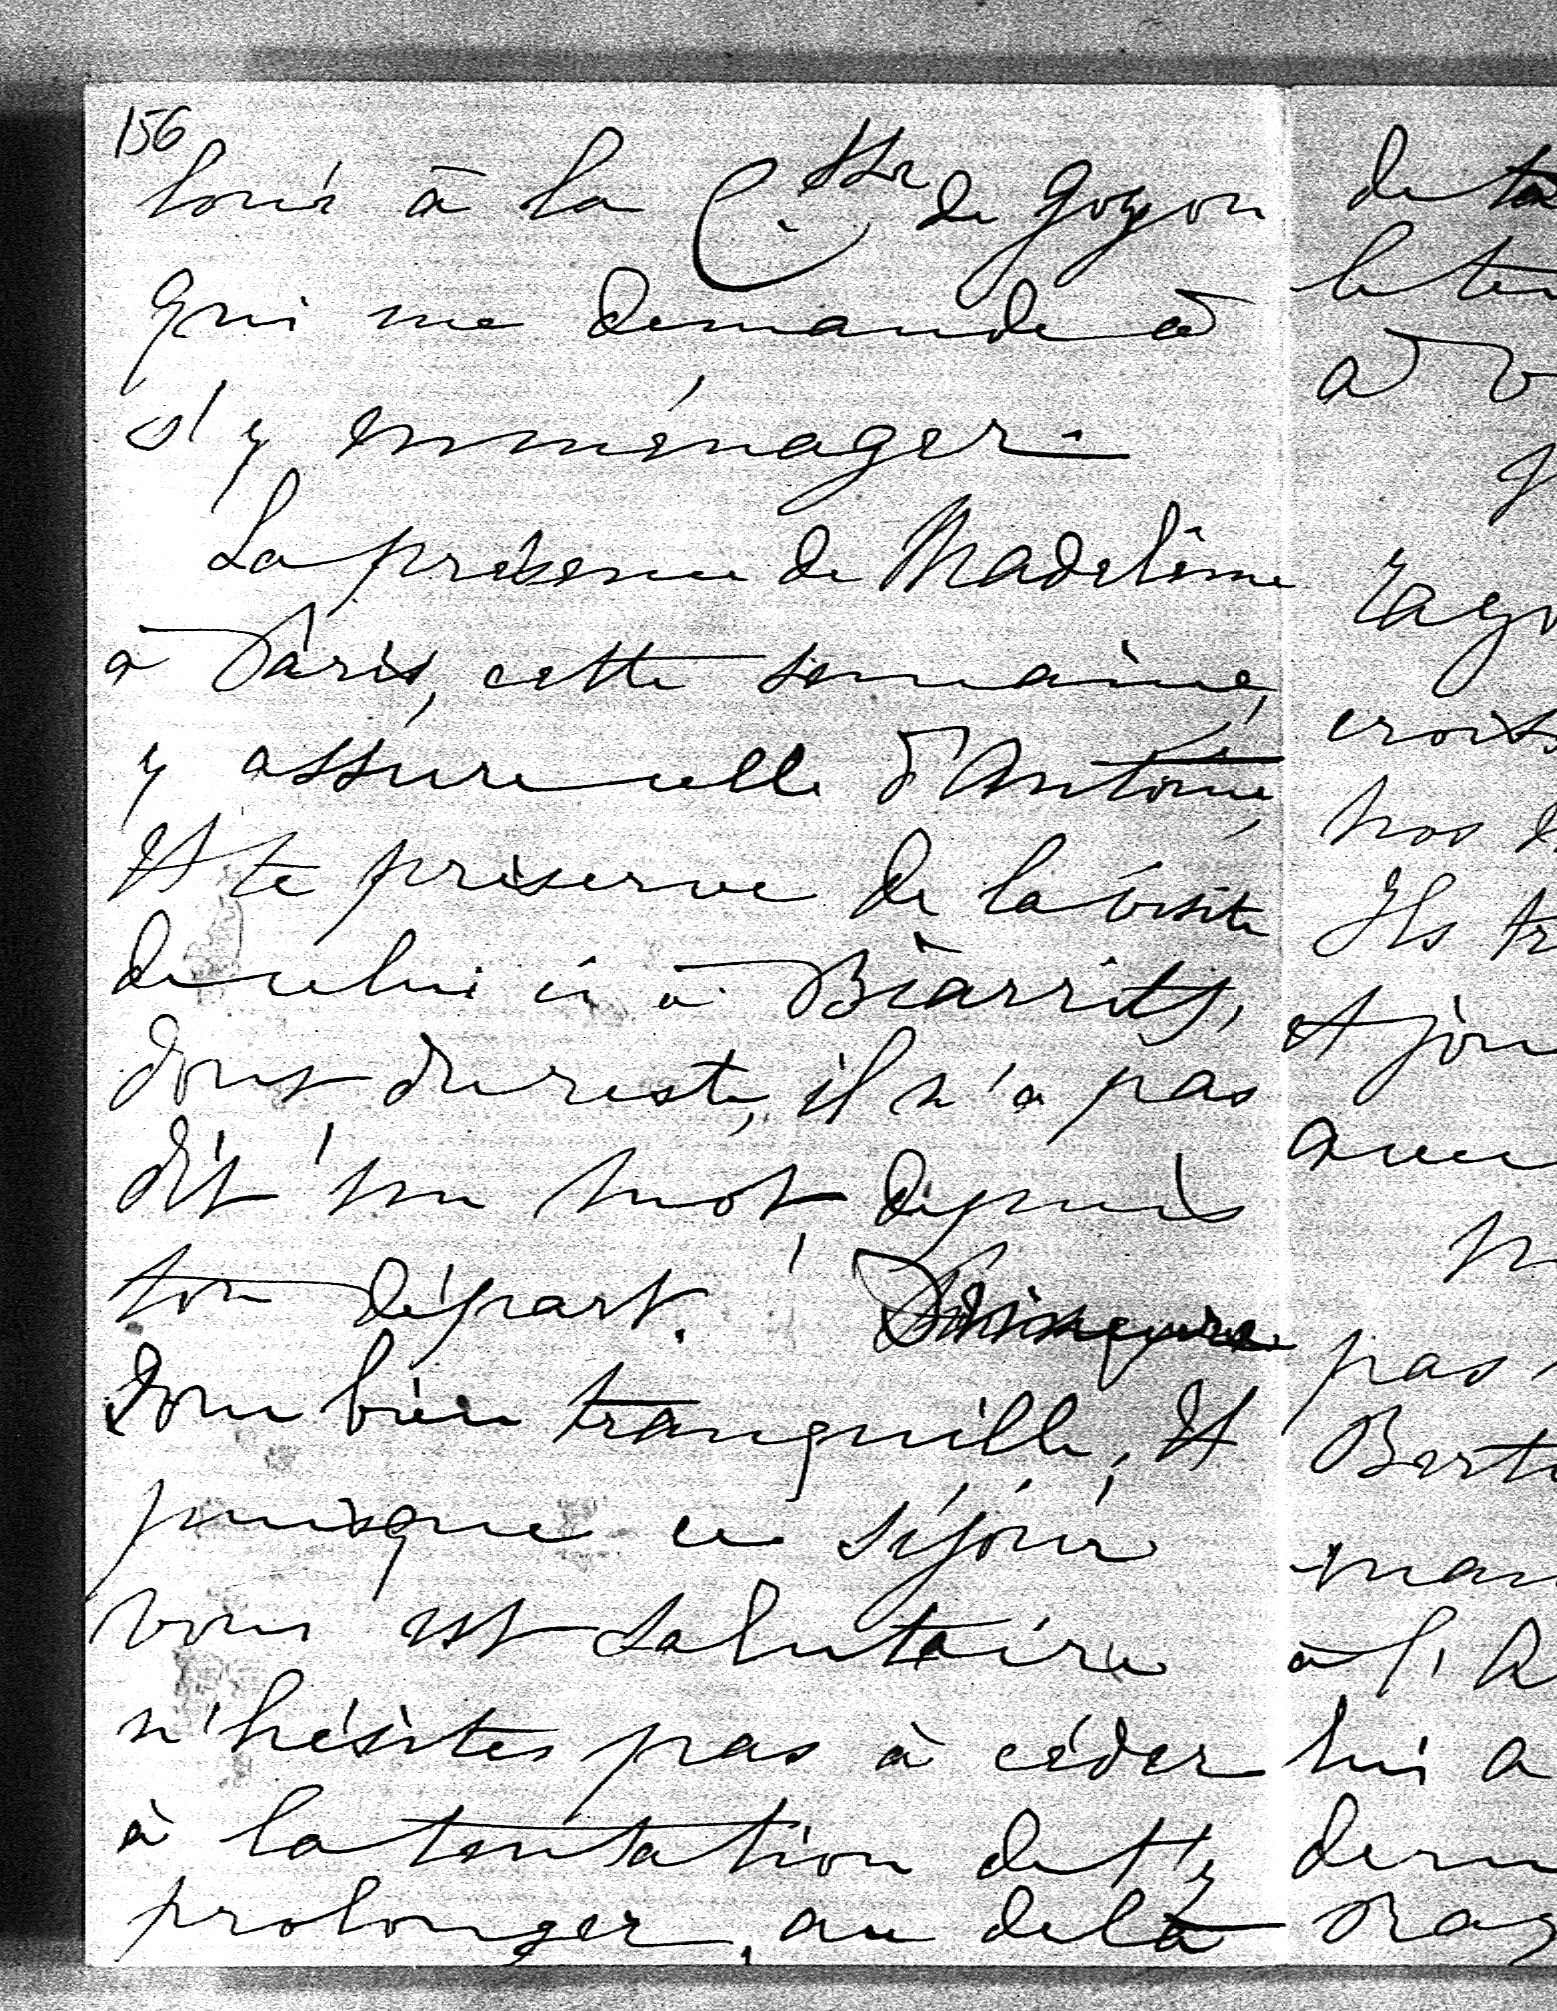 156
loué à la Ctsse de Goyon
qui me demande à
s'y emménager.
La présence de Madeleine
à Paris, cette semaine,
y assure celle d'Antoine,
et te préserve de la visite
de celui ci à Biarritz,
dont du reste, il n'a pas
dit un mot, depuis
ton départ.
donc bien tranquille, et
puisque ce séjour
vous est salutaire
n'hésites pas à céder
à la tentation de t'y
prolonger, au delà
de ta
le te
à v
crois
nos
Ils tr
et jou
avec
pas
man
à l'
lui a